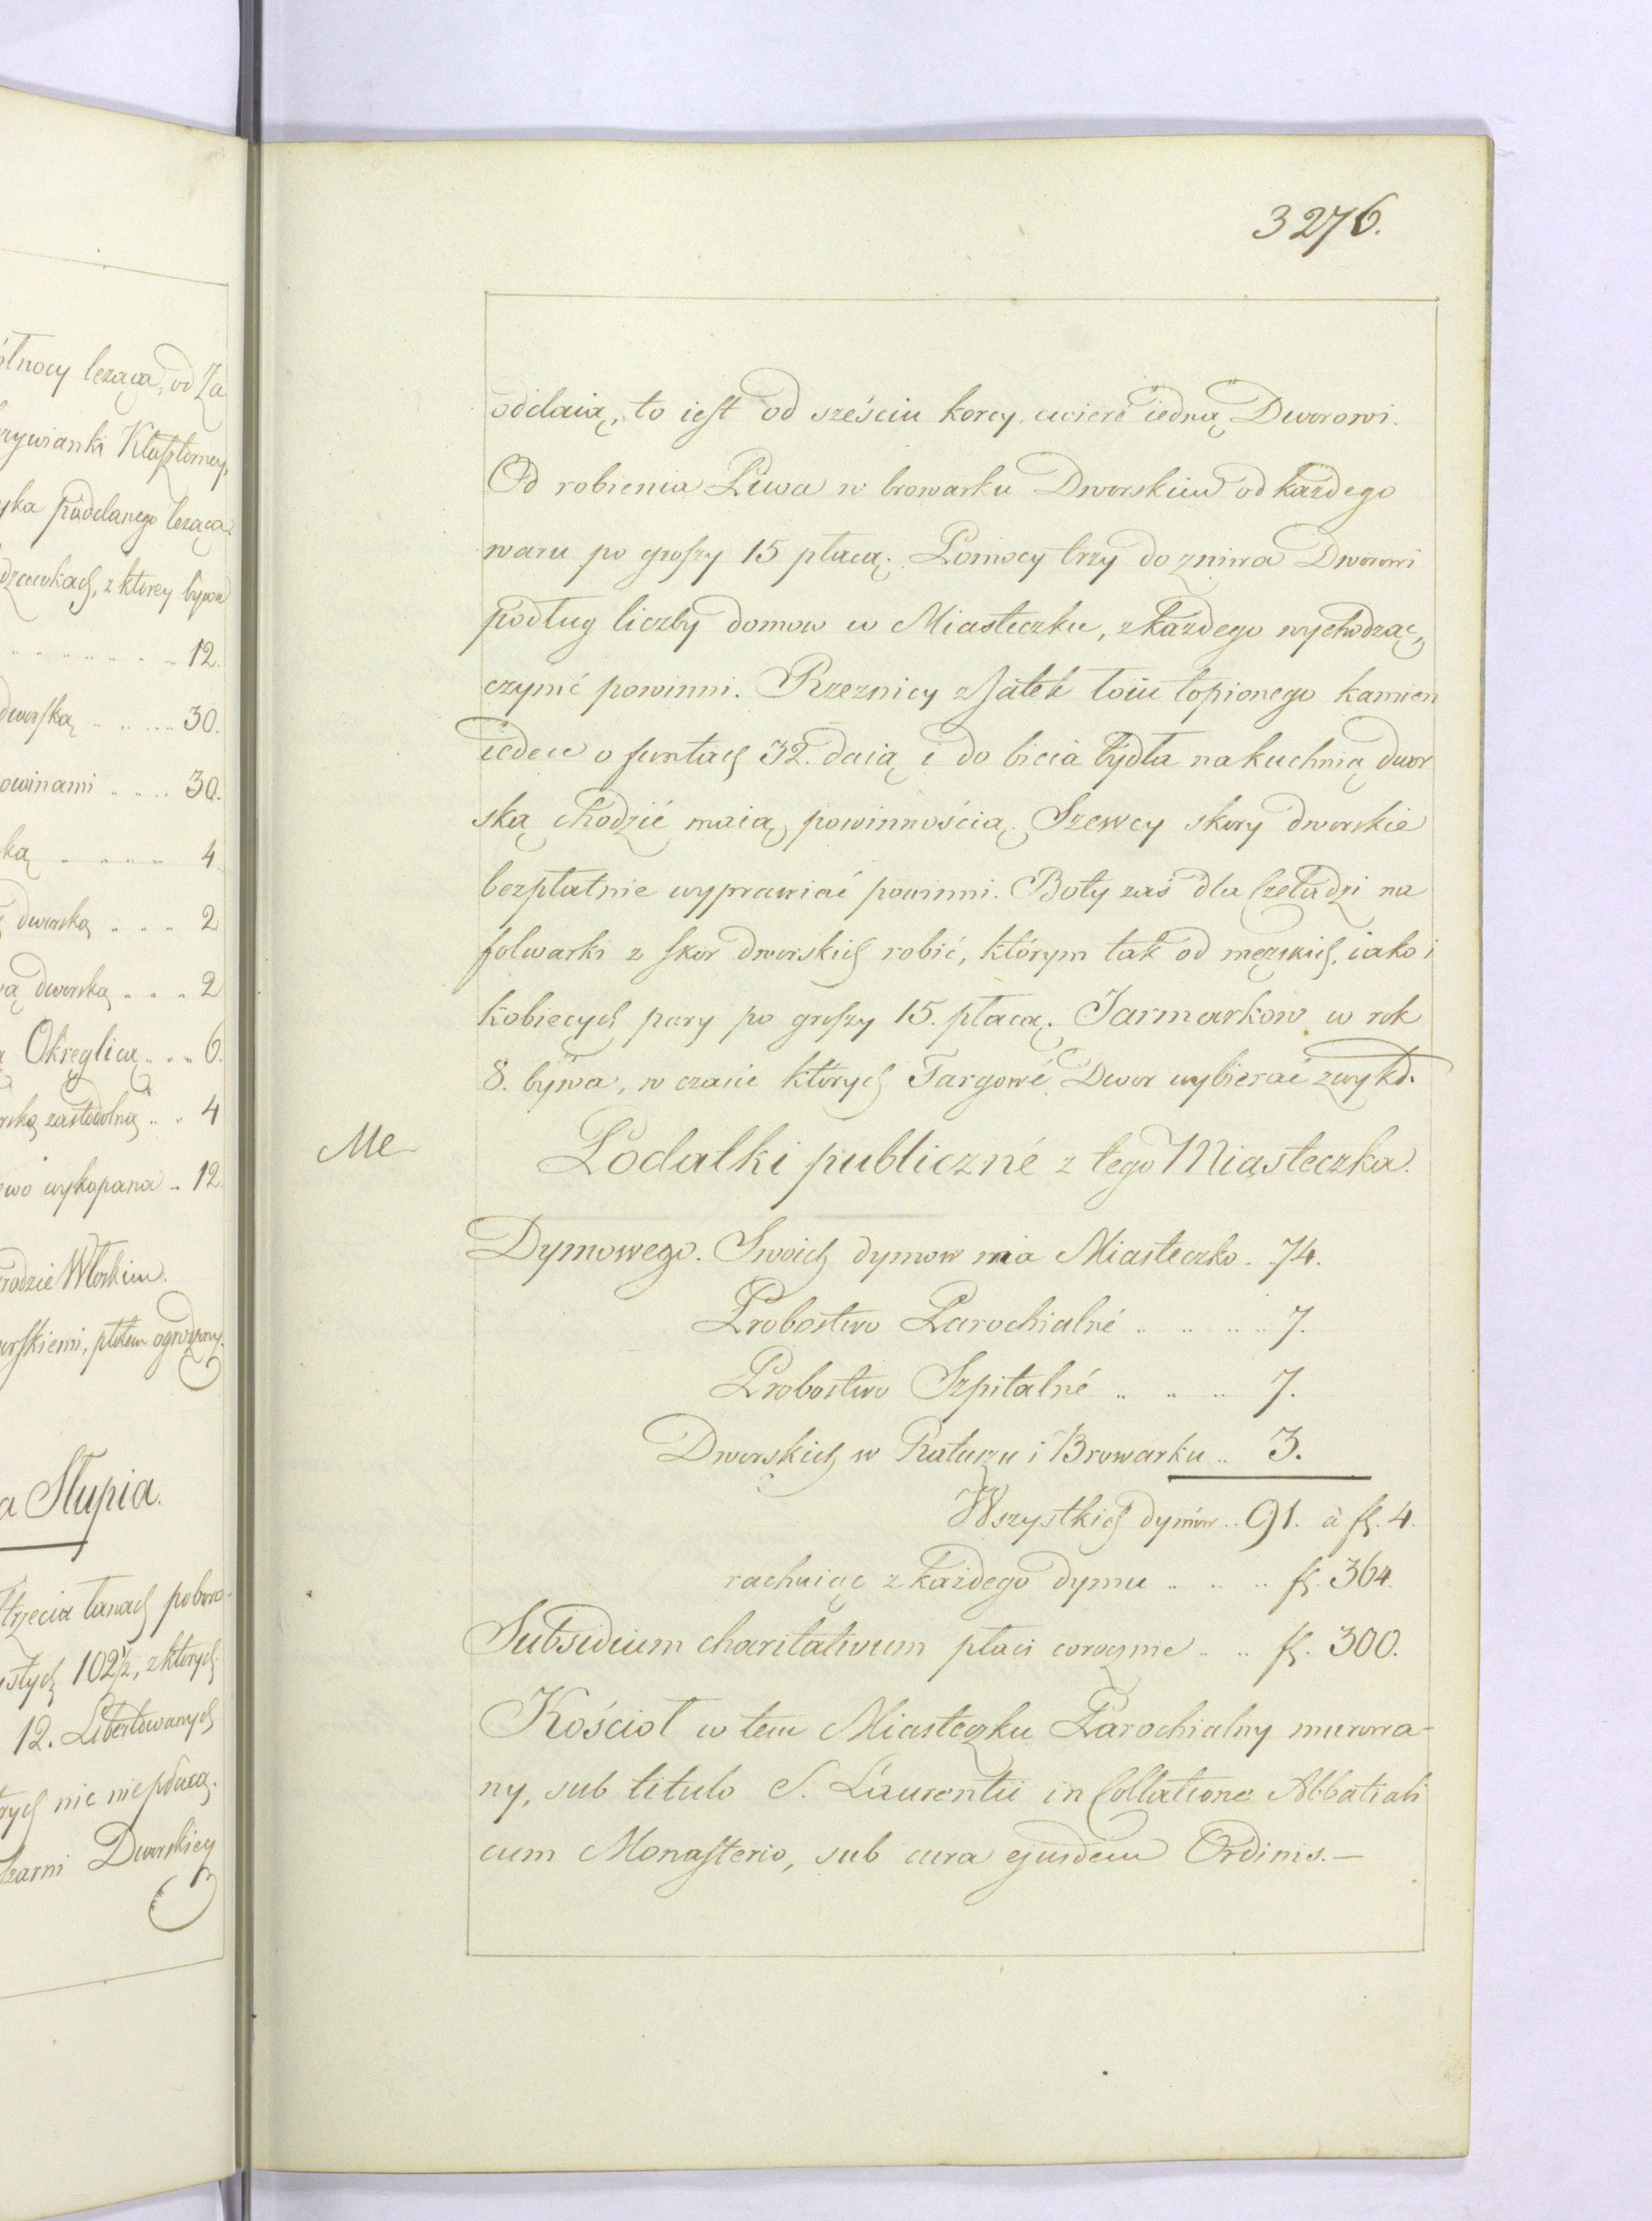 3276.
oddaią, to iest od sześciu korcy, cwierć iedną Dworowi.
Od robienia Piwa w browarku Dworskim od każdego
waru po groszy 15 płacą. Pomocy trzy do zniwa Dworowi
podług liczby domow w Miasteczku, z każdego wychodząc,
czynić powinni. Rzeznicy z Jatek łoiu topionego kamien
ieden o funtach 32. daią i do bicia bydła na kuchnią dwor
ską chodzić maią powinnością. Szewcy skory dworskie
bezpłatnie wyprawiać powinni. Boty zaś dla Czeladzi na
folwarki z skor dworskich robić, którym tak od męzskich, iako i
kobiecych pary po groszy 15. płacą. Jarmarkow w rok
8. bywa, w czasie których Targowé Dwor wybierać zwykł.
Me
Podatki publiczné z tego Miasteczka.
Dymowego. Swoich dymow ma Miasteczko .. 74.
Probostwo Parochialné .. .. .. .. 7.
Probostwo Szpitalné .. .. .. 7.
Dworskich w Ratuszu i Browarku .. 3.
Wszystkich dymów .. 91. à fl. 4.
rachuiąc z każdego dymu .. .. .. fl. 364.
Subsidium charitativum płaci corocznie .. .. fl. 300.
Kościoł w tem Miasteczku Parochialny murowa-
ny, sub titulo S. Laurentii in Collatione Abbatiali
cum Monasterio, sub cura ejusdem Ordinis.—
łnocy leząca, od Za
rywianki Klasztorney,
leząca.
z ktorey bywa
12.
dworską .. .. .. 30.
owinami .. .. .. 30.
ką .. .. .. 4
dworską .. .. .. 2
dworską .. .. .. 2
Okręglicą .. .. 6.
rską .. .. 4
wykopana .. 12.
rodzie Włoskim.
rskiemi, płotem ogrodzony.
a Słupia.
trzecia łanach poboro-
stych 102½, z których
12. Libertowanych
rych nic nie płacą.
Dworskiey